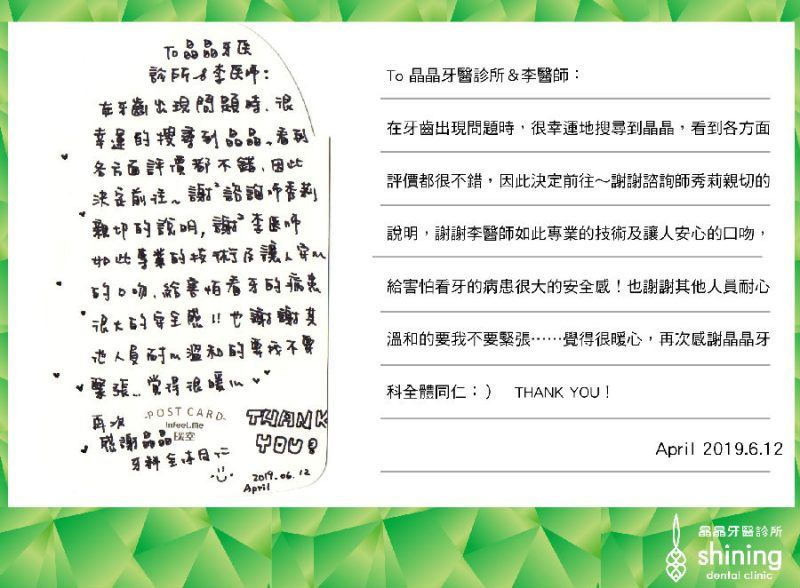 To 晶晶牙醫
診所&李醫師：
在牙齒出現問題時、很
幸運的搜尋到晶晶、看到
各方面評價都不錯、因此
決定前往~謝²諮詢師秀莉
親切的說明，謝²李醫師
如此專業的技術及讓人安心
的口吻、給害怕看牙的病患
很大的安全感!!也謝謝其
他人員耐心溫和的要我不要
緊張...覺得很暖心
再次
感謝晶晶
牙科全体同仁
POST CARD
InFeel.Me
THANK
YOU!
2019.06.12
April
To 晶晶牙醫診所＆李醫師：
在牙齒出現問題時，很幸運地搜尋到晶晶，看到各方面
評價都很不錯，因此決定前往～謝謝諮詢師秀莉親切的
說明，謝謝李醫師如此專業的技術及讓人安心的口吻，
給害怕看牙的病患很大的安全感！也謝謝其他人員耐心
溫和的要我不要緊張……覺得很暖心，再次感謝晶晶牙
科全體同仁：） THANK YOU！
April 2019.6.12
晶晶牙醫診所
shining
dental clinic